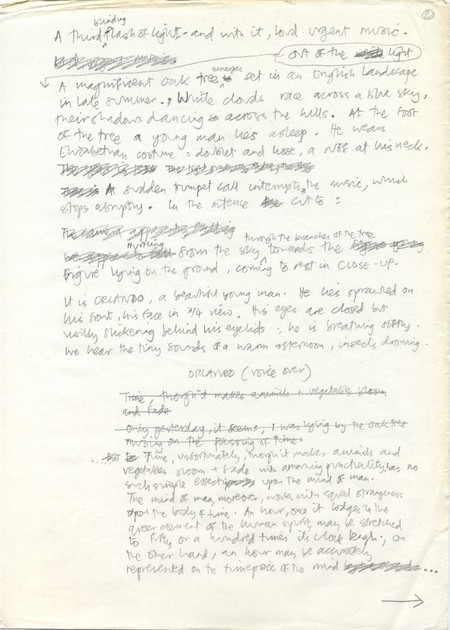 2
blinding
A third flash of light - and with it, loud urgent music.
out of the light
emerges
A magnificent oak tree set in an English landscape
in late summer. White clouds race across a blue sky,
their shadows dancing across the hills. At the foot
of the tree a young man lies asleep. He wears
Elizabethan costume: doublet and hose, a ruff at his neck.
A sudden trumpet call interrupts the music, which
stops abruptly. In the silence we cut to:
through the branches of the tree
from the sky towards the
figure lying on the ground, coming to rest in CLOSE-UP.
It is ORLANDO, a beautiful young man. He lies sprawled on
his front, his face in 3/4 view. His eyes are closed but
flickering behind his eyelids: he is breathing softly.
We hear the tiny sounds of a warm afternoon, insects droning.
ORLANDO (voice over)
Time, though it makes animals + vegetables bloom
and fade
Only yesterday, it seems, I was lying by the oak tree
musing on the passing of time.
Time, unfortunately, though it makes animals and
vegetables bloom + fade with amazing punctuality, has no
such simple effect upon the mind of man.
The mind of man, moreover, works with equal strangeness
upon the body of time. An hour, once it lodges in the
queer element of the human spirit may be stretched
to fifty or a hundred times its clock length; on
the other hand, an hour may be accurately
represented on the timepiece of the mind ...